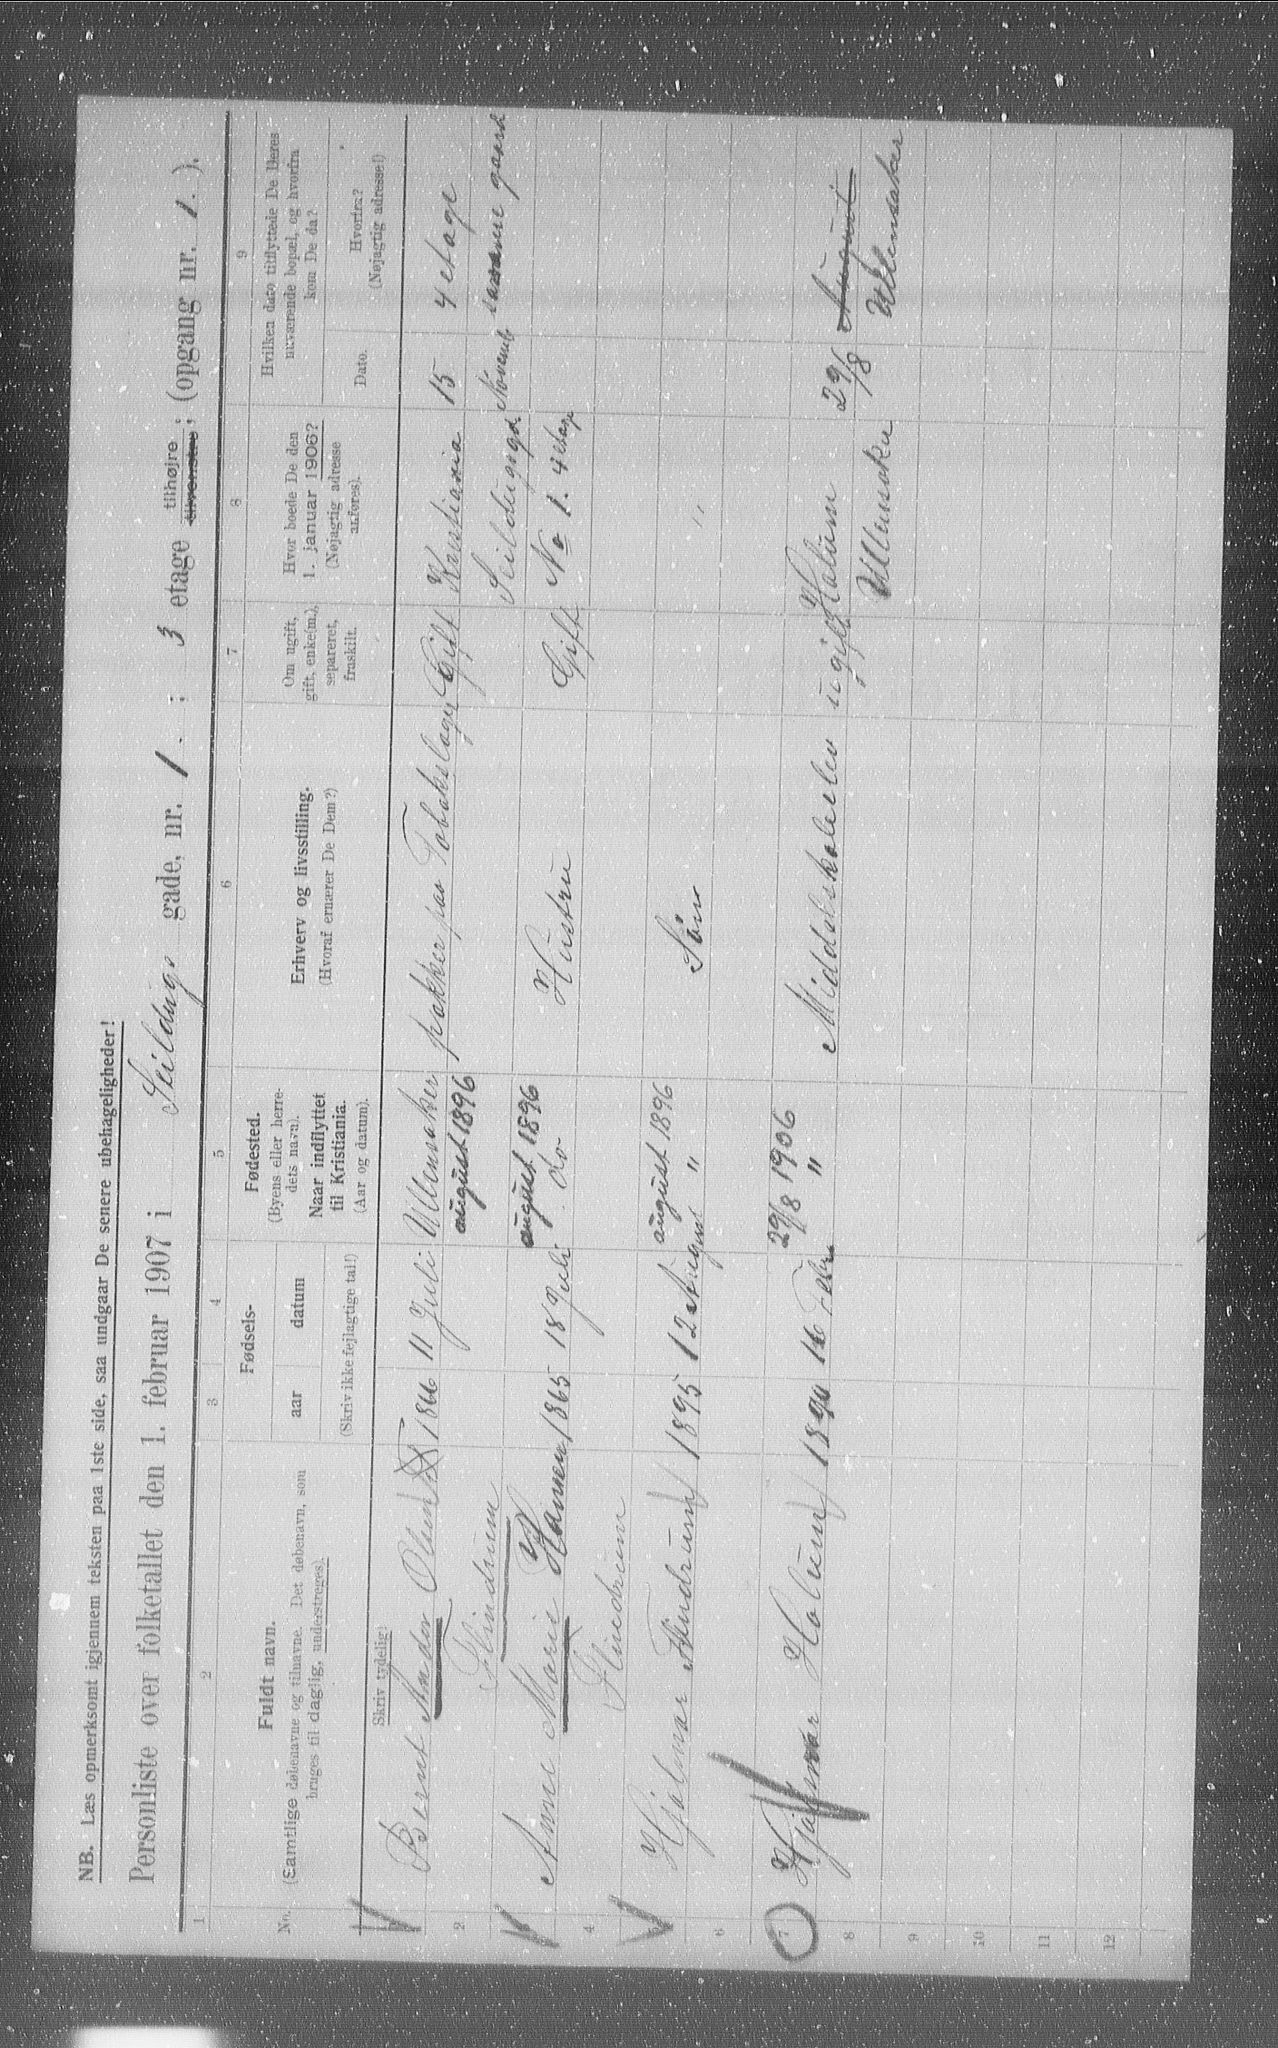 NB. Læs opmerksomt igjennem teksten paa 1ste side, saa undgaar De senere ubehageligheder!
Personliste over folketallet den 1. februar 1907 i Seildugs gade, nr. 1. ; 3 etage tilhøjre tilvenstre; (opgang nr. 1. ).
1 2 3 4 5 6 7 8 9
No.
Fuldt navn.
(Samtlige døbenavne og tilnavne. Det døbenavn, som
bruges til daglig, understreges).
Skriv tydelig!
Fødsels-
aar datum
(Skriv ikke fejlagtige tal!)
Fødested.
(Byens eller herre-
dets navn).
Naar indflyttet
til Kristiania.
(Aar og datum).
Erhverv og livsstilling.
(Hvoraf ernærer De Dem?)
Om ugift,
gift, enke(m.),
separeret,
fraskilt.
Hvor boede De den
1. januar 1906?
(Nøjagtig adresse
anføres).
Hvilken dato tilflyttede De Deres
nuværende bopæl, og hvorfra
kom De da?
Dato.
Hvorfra?
(Nøjagtig adresse!)
Bernt Andor Olsen 1866 11 Juli Ullensaker pakker paa Tobakslager Gift Kristiania 15 4 etage
2 Flindrum august 1896 Seildugsgd. Novemb samme gaard
Anne Marie Hansen 1865 18 Juli august 1896 do Hustru Gift No 1. 4 etage
4 Flindrum
5 Hjalmar Flindrum 1895 12 August august 1896 " Søn "
6
7 Hjalmar Holum 1890 16 Febr 29/8 1906 " Middelskoleelev ugift Holum 29/8 August
8 Ullensaker Ullensaker
9
10
11
12